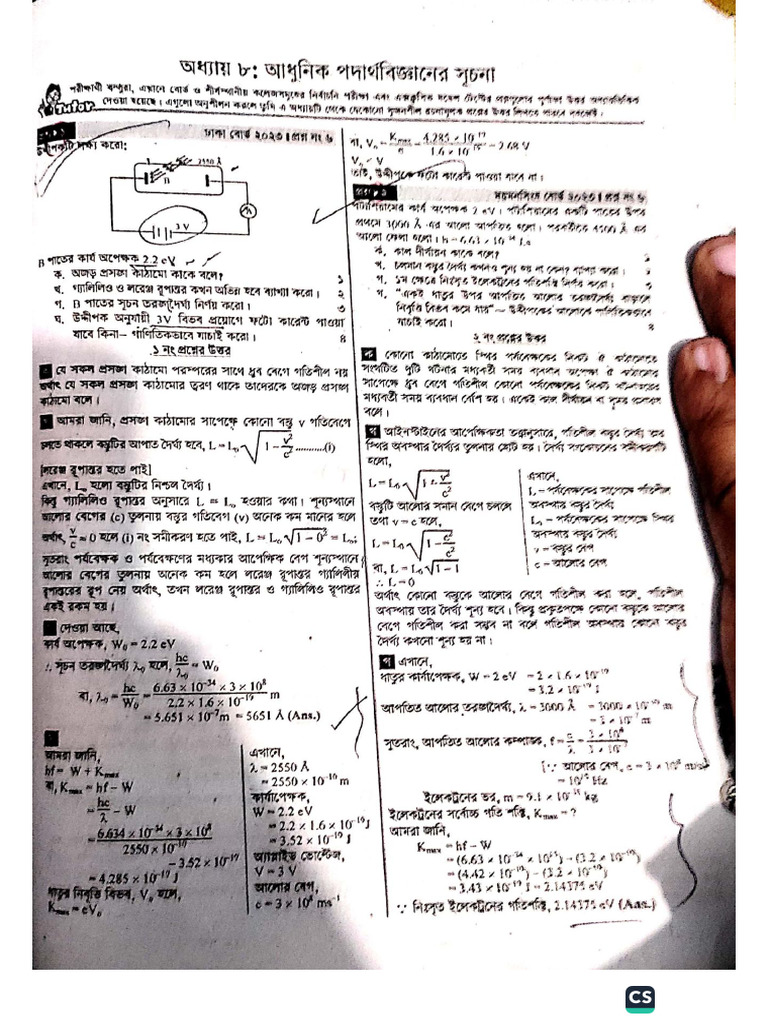 অধ্যায় ৮: আধুনিক পদার্থবিজ্ঞানের সূচনা
Tutor
ঢাকা বোর্ড ২০২৩। প্রশ্ন নং ৬
লক্ষ্য করো:
2550 Å
B
3 V
B পাতের কার্য অপেক্ষক 2.2 eV
ক. অজড় প্রসঙ্গ কাঠামো কাকে বলে? ১
খ. গ্যালিলিও ও লরেঞ্জ রূপান্তর কখন অভিন্ন হবে ব্যাখ্যা করো। ২
গ. B পাতের সূচন তরঙ্গদৈর্ঘ্য নির্ণয় করো। ৩
ঘ. উদ্দীপক অনুযায়ী 3V বিভব প্রয়োগে ফটো কারেন্ট পাওয়া
যাবে কিনা– গাণিতিকভাবে যাচাই করো। ৪
১ নং প্রশ্নের উত্তর
যে সকল প্রসঙ্গ কাঠামো পরস্পরের সাথে ধ্রুব বেগে গতিশীল নয়
অর্থাৎ যে সকল প্রসঙ্গ কাঠামোর ত্বরণ থাকে তাদেরকে অজড় প্রসঙ্গ
কাঠামো বলে।
আমরা জানি, প্রসঙ্গ কাঠামোর সাপেক্ষে কোনো বস্তু v গতিবেগে
চলতে থাকলে বস্তুটির আপাত দৈর্ঘ্য হবে, L = L₀√(1 − v²/c²) ..........(i)
[লরেঞ্জ রূপান্তর হতে পাই]
এখানে, L₀ হলো বস্তুটির নিশ্চল দৈর্ঘ্য।
কিন্তু গ্যালিলিও রূপান্তর অনুসারে L = L₀ হওয়ার কথা। শূন্যস্থানে
আলোর বেগের (c) তুলনায় বস্তুর গতিবেগ (v) অনেক কম মানের হলে
অর্থাৎ, v/c ≈ 0 হলে (i) নং সমীকরণ হতে পাই, L = L₀√(1 − 0²) = L₀;
সুতরাং পর্যবেক্ষক ও পর্যবেক্ষণের মধ্যকার আপেক্ষিক বেগ শূন্যস্থানে
আলোর বেগের তুলনায় অনেক কম হলে লরেঞ্জ রূপান্তর গ্যালিলীয়
রূপান্তরের রূপ নেয় অর্থাৎ, তখন লরেঞ্জ রূপান্তর ও গ্যালিলিও রূপান্তর
একই রকম হয়।
দেওয়া আছে,
কার্য অপেক্ষক, W₀ = 2.2 eV
∴ সূচন তরঙ্গদৈর্ঘ্য λ₀ হলে, hc/λ₀ = W₀
বা, λ₀ = hc/W₀ = (6.63 × 10⁻³⁴ × 3 × 10⁸)/(2.2 × 1.6 × 10⁻¹⁹) m
= 5.651 × 10⁻⁷ m = 5651 Å (Ans.)
আমরা জানি,
hf = W + Kmax
বা, Kmax = hf − W
= hc/λ − W
= (6.634 × 10⁻³⁴ × 3 × 10⁸)/(2550 × 10⁻¹⁰)
− 3.52 × 10⁻¹⁹
= 4.285 × 10⁻¹⁹ J
ধাতুর নিবৃত্তি বিভব, V₀ হলে,
Kmax = eV₀
এখানে,
λ = 2550 Å
= 2550 × 10⁻¹⁰ m
কার্যাপেক্ষক,
W = 2.2 eV
= 2.2 × 1.6 × 10⁻¹⁹ J
= 3.52 × 10⁻¹⁹ J
অ্যাপ্লাইড ভোল্টেজ,
V = 3 V
আলোর বেগ,
c = 3 × 10⁸ ms⁻¹
বা, V₀ = Kmax/e = (4.285 × 10⁻¹⁹)/(1.6 × 10⁻¹⁹) = 2.68 V
V₀ < V
তাই, উদ্দীপকে ফটো কারেন্ট পাওয়া যাবে না।
ময়মনসিংহ বোর্ড ২০২৩। প্রশ্ন নং ৬
পটাশিয়ামের কার্য অপেক্ষক 2 eV। পটাশিয়ামের একটি পাতের উপর
প্রথমে 3000 Å এর আলো আপতিত হলো। পরবর্তীতে 4500 Å এর
আলো ফেলা হলো। h = 6.63 × 10⁻³⁴ Js
ক. কাল দীর্ঘায়ন কাকে বলে?
খ. চলমান বস্তুর দৈর্ঘ্য কখনও শূন্য হয় না কেন? ব্যাখ্যা করো।
গ. ১ম ক্ষেত্রে নিঃসৃত ইলেকট্রনের গতিশক্তি নির্ণয় করো।
ঘ. "একই ধাতুর উপর আপতিত আলোর তরঙ্গদৈর্ঘ্য বাড়ালে
নিবৃত্তি বিভব কমে যায়"– উদ্দীপকের আলোকে গাণিতিকভাবে
যাচাই করো। ৪
২ নং প্রশ্নের উত্তর
ক কোনো কাঠামোতে স্থির পর্যবেক্ষকের নিকট ঐ কাঠামোতে
সংঘটিত দুটি ঘটনার মধ্যবর্তী সময় ব্যবধান অপেক্ষা ঐ কাঠামোর
সাপেক্ষে ধ্রুব বেগে গতিশীল কোনো পর্যবেক্ষকের নিকট
মধ্যবর্তী সময় ব্যবধান বেশি হয়। একেই কাল দীর্ঘায়ন বা সময়
বলে।
খ আইনস্টাইনের আপেক্ষিকতা তত্ত্বানুসারে, গতিশীল বস্তুর দৈর্ঘ্য তার
স্থির অবস্থার দৈর্ঘ্যের তুলনায় ছোট হয়। দৈর্ঘ্য সংকোচনের সমীকরণটি
হলো,
L = L₀√(1 − v²/c²)
বস্তুটি আলোর সমান বেগে চললে
তথা v = c হলে,
L = L₀√(1 − c²/c²)
বা, L = L₀√(1 − 1)
∴ L = 0
এখানে,
L = পর্যবেক্ষকের সাপেক্ষে গতিশীল
বস্তুর দৈর্ঘ্য
L₀ = পর্যবেক্ষকের সাপেক্ষে স্থির
অবস্থায় বস্তুর দৈর্ঘ্য
v = বস্তুর বেগ
c = আলোর বেগ
অর্থাৎ কোনো বস্তুকে আলোর বেগে গতিশীল করা হলে, গতিশীল
অবস্থায় তার দৈর্ঘ্য শূন্য হবে। কিন্তু প্রকৃতপক্ষে কোনো বস্তুকে আলোর
বেগে গতিশীল করা সম্ভব না বলে গতিশীল অবস্থায় কোনো বস্তুর
দৈর্ঘ্য কখনো শূন্য হয় না।
গ এখানে,
ধাতুর কার্যাপেক্ষক, W = 2 eV = 2 × 1.6 × 10⁻¹⁹
= 3.2 × 10⁻¹⁹ J
আপতিত আলোর তরঙ্গদৈর্ঘ্য, λ = 3000 Å = 3000 × 10⁻¹⁰ m
= 3 × 10⁻⁷ m
সুতরাং, আপতিত আলোর কম্পাঙ্ক, f = c/λ = (3 × 10⁸)/(3 × 10⁻⁷)
[∵ আলোর বেগ, c = 3 × 10⁸ m/s]
= 10¹⁵ Hz
ইলেকট্রনের ভর, m = 9.1 × 10⁻³¹ kg
ইলেকট্রনের সর্বোচ্চ গতি শক্তি, Kmax = ?
আমরা জানি,
Kmax = hf − W
= (6.63 × 10⁻³⁴ × 10¹⁵) − (3.2 × 10⁻¹⁹)
= (4.42 × 10⁻¹⁹) − (3.2 × 10⁻¹⁹)
= 3.43 × 10⁻¹⁹ J = 2.14375 eV
∵ নিঃসৃত ইলেকট্রনের গতিশক্তি, 2.14375 eV (Ans.)
CS